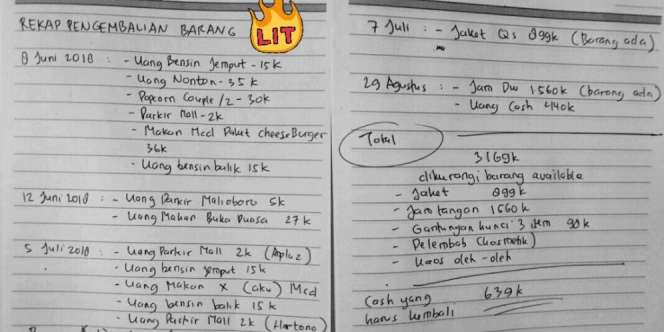 REKAP PENGEMBALIAN BARANG
LIT
8 Juni 2018 : - Uang Bensin Jemput - 15k
- Uang Nonton - 35k
- Popcorn Couple /2 - 30k
- Parkir Mall - 2k
- Makan Mcd Paket cheeseBurger
36k
- Uang bensin balik 15k
12 Juni 2018 : - Uang Parkir Malioboro 5k
- Uang Makan Buka Puasa 27k
5 Juli 2018 : - Uang Parkir Mall 2k (Aplaz)
- Uang bensin jemput 15k
- Uang Makan X (aku) Mcd
- Uang bensin balik 15k
- Uang Parkir Mall 2k (Hartono)
7 Juli : - Jaket Qs 899k (Barang ada)
29 Agustus : - Jam Dw 1560k (barang ada)
- Uang Cash 440k
Total
3169k
dikurangi barang available
- Jaket 899k
- Jam tangan 1560k
- Gantungan kunci 3 item 90k
- Pelembab (kosmetik)
- Kaos oleh-oleh
Cash yang 639k
harus kembali